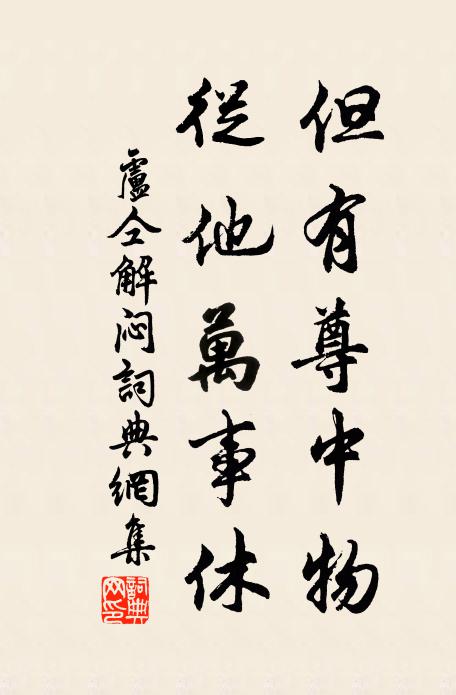 但有尊中物
從他萬事休
盧仝解悶詞典網集
詞典
网印